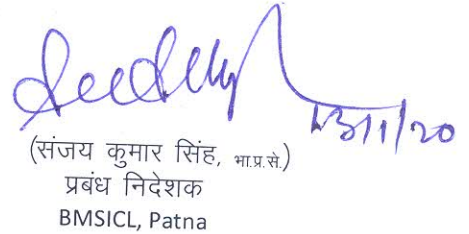 13/11/20
(संजय कुमार सिंह, भा.प्र.से.)
प्रबंध निदेशक
BMSICL, Patna